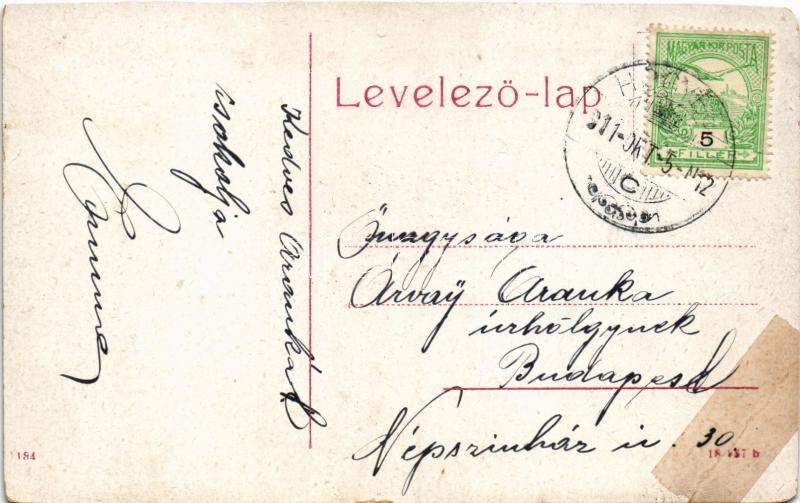 Levelező-lap
MAGYAR KIR. POSTA
5
FILLÉR
911-OKT.-5-N12
C
Kedves Arankát
csokolja
Emma
Őnagysága
Árvaÿ Aranka
úrhölgynek
Budapest
Népszinház u. 30
184